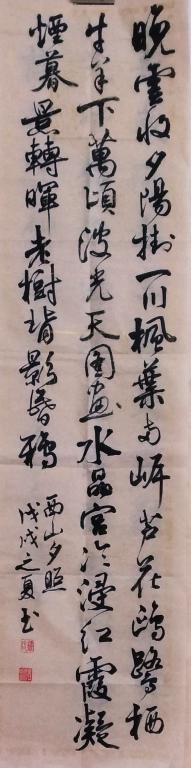 晚雲收夕陽掛一川楓葉两岸芦花鷗鷺栖
牛羊下萬頃波光天图画水晶宮冷浸红霞凝
煙暮景轉暉老樹背影昏鴉
西山夕照
戊戌之夏书